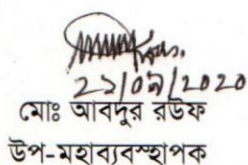 ২১/০৯/২০২০
মোঃ আবদুর রউফ
উপ-মহাব্যবস্থাপক